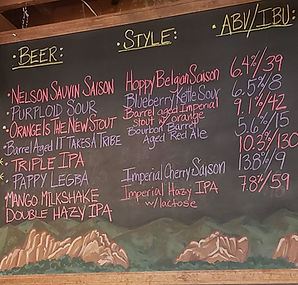 BEER: STYLE: ABV/IBU:
NELSON SAUVIN SAISON Hoppy Belgian Saison 6.4%/39
PURPLOID SOUR Blueberry Kettle Sour 6.5%/8
ORANGE IS THE NEW STOUT Barrel aged Imperial Stout w/ orange 9.1%/42
Barrel Aged IT TAKES A TRIBE Bourbon Barrel Aged Red Ale 5.6%/15
TRIPLE IPA 10.3%/130
PAPPY LEGBA Imperial Cherry Saison 13.8%/9
MANGO MILKSHAKE Imperial Hazy IPA 7.8%/59
DOUBLE HAZY IPA w/ lactose